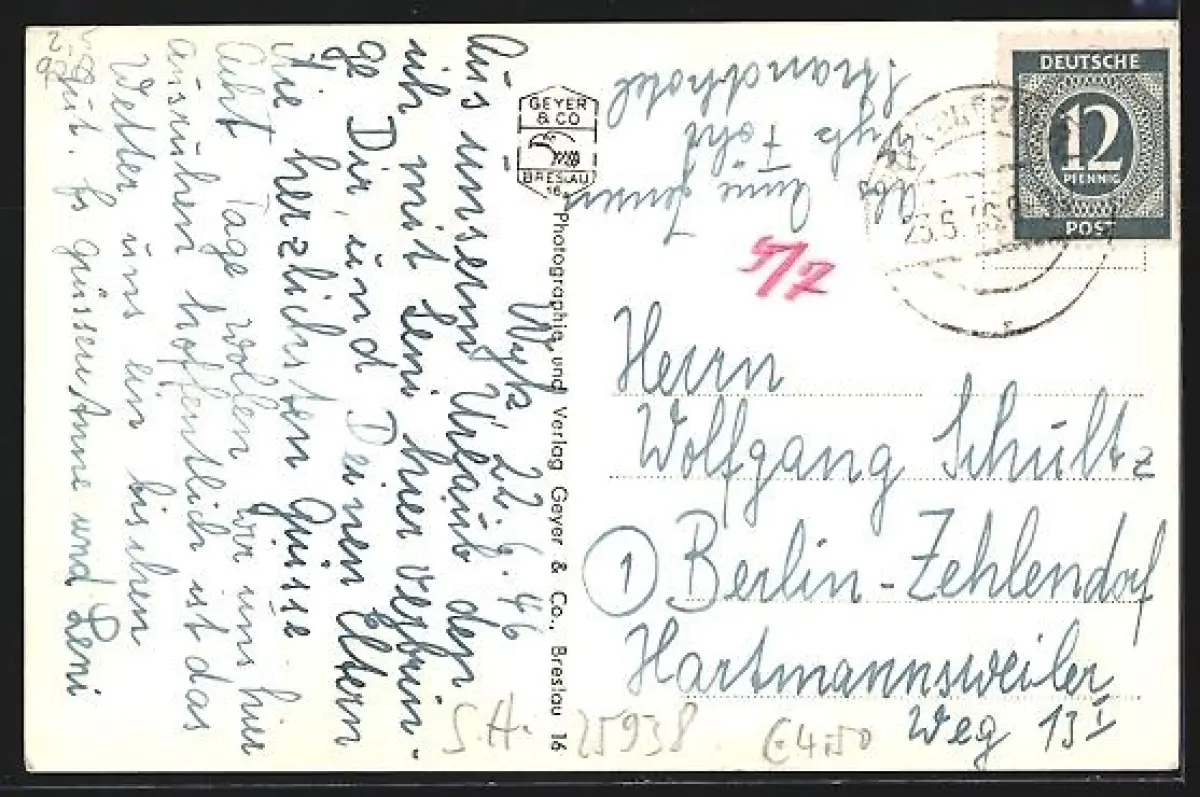 Wyk, 22.6.46
Aus unserm Urlaub der
ich mit Leni hier verbrin-
ge Dir und Deinen Eltern
die herzlichsten Grüsse
Acht Tage wollen wir uns hier
ausruhen hoffentlich ist das
Wetter uns ein bischen
gut. Es grüssen Anne und Leni
GEYER
& CO
BRESLAU
16
Photographie und Verlag Geyer & Co., Breslau 16
Abs. Anne
Wyk Föhr
Strandhotel
DEUTSCHE
12
PFENNIG
POST
5/7
Herrn
Wolfgang Schultz
1 Berlin-Zehlendorf
Hartmannsweiler
Weg 13 I
S.H. 25938 € 4.50